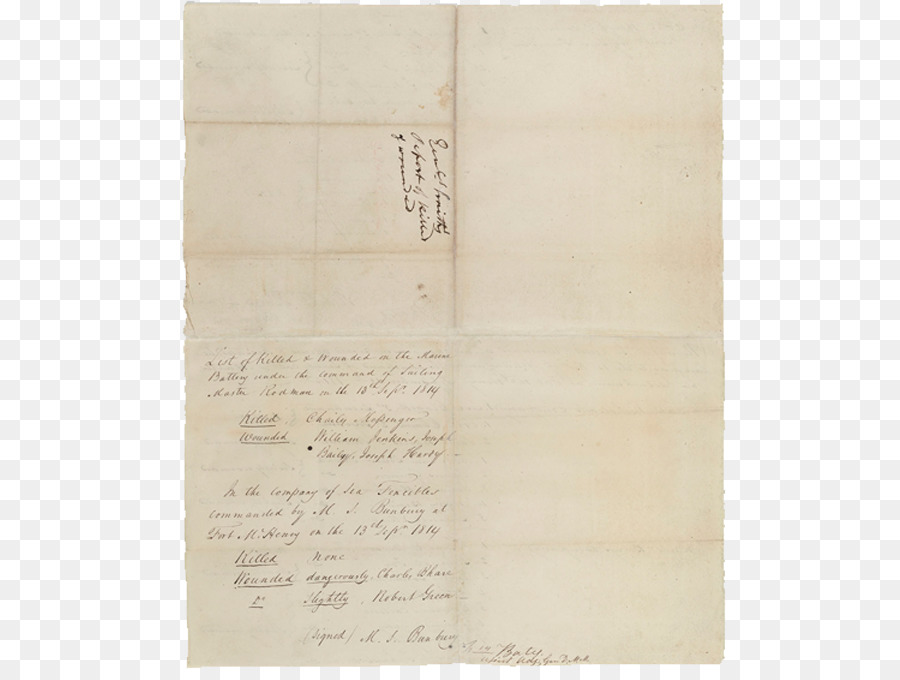 Report of killed
& wounded
List of Killed & Wounded on the Marine
Battery under the command of Sailing
Master Rodman on the 13th Sepr. 1814
Killed Charles Messenger
Wounded William Jenkens, Joseph
Baily, Joseph Hardy
In the company of Sea Fencibles
commanded by M. S. Bunbury at
Fort McHenry on the 13th Sepr. 1814
Killed None
Wounded dangerously, Charles
Do slightly, Robert Green
(Signed) M. S. Bunbury